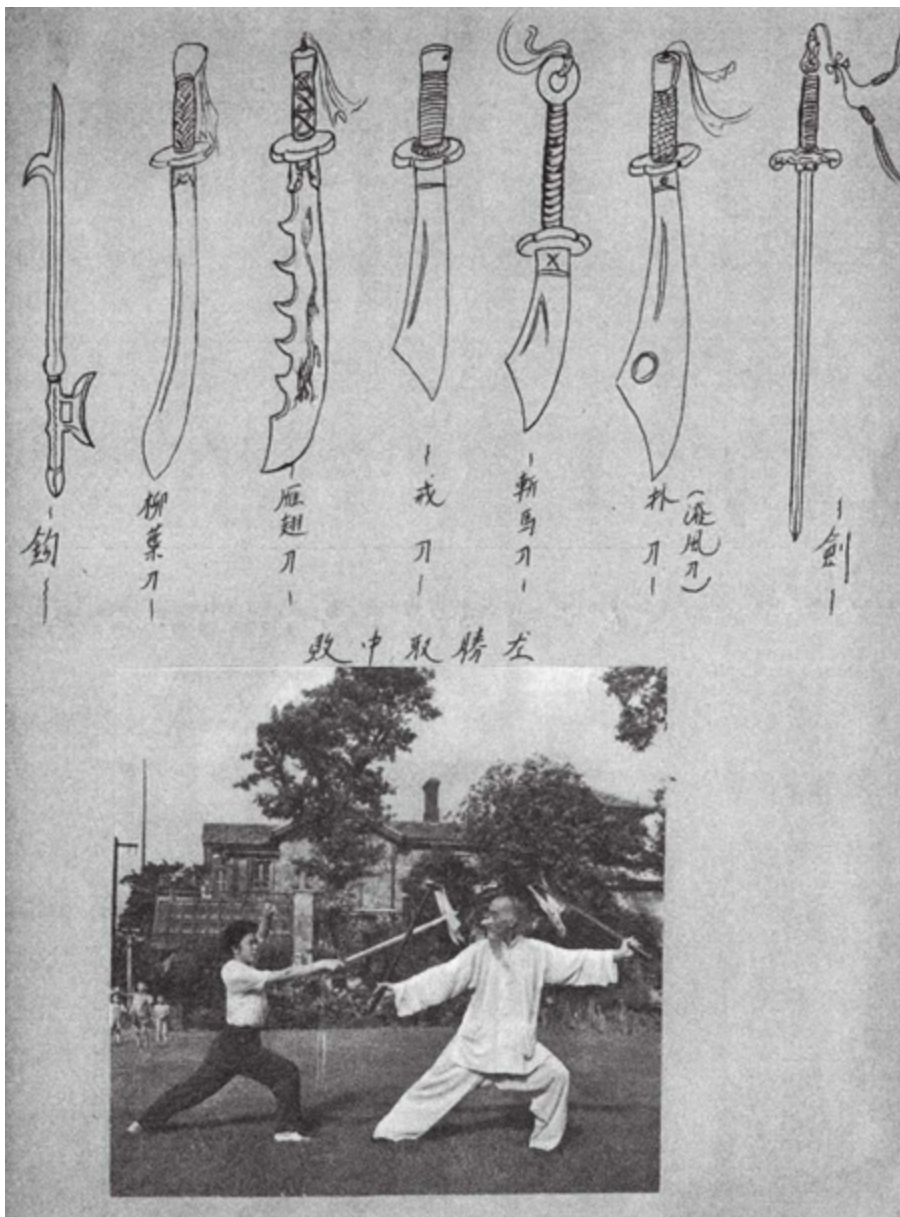 鈎
柳葉刀
雁翅刀
戒刀
斬馬刀
朴刀
劍
敗中取勝左